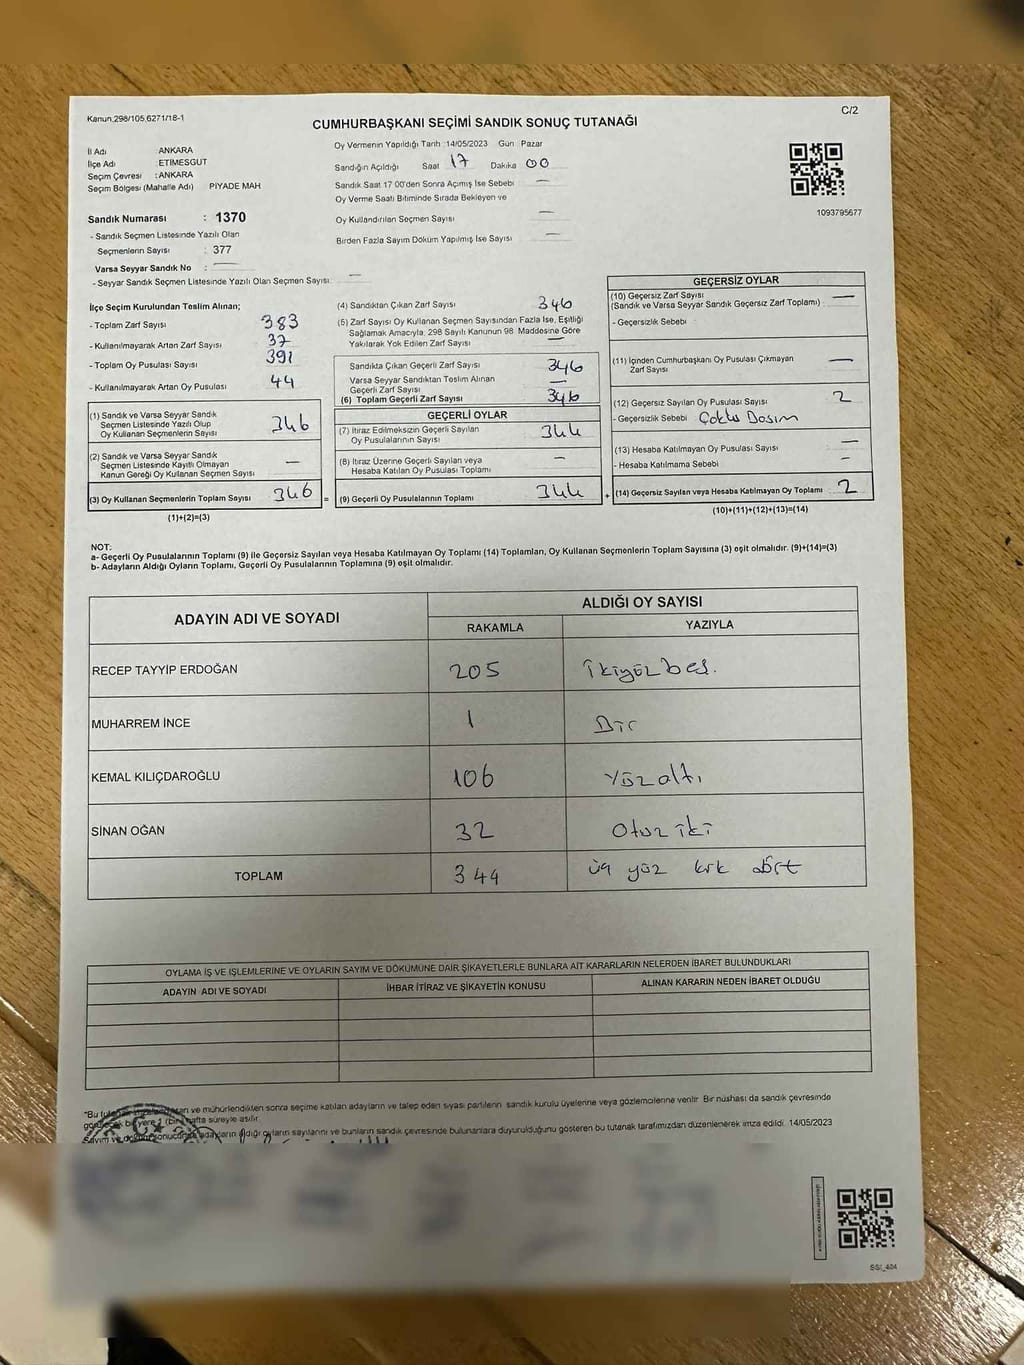 Kanun.298/105,6271/18-1
C/2
CUMHURBAŞKANI SEÇİMİ SANDIK SONUÇ TUTANAĞI
İl Adı : ANKARA
İlçe Adı : ETİMESGUT
Seçim Çevresi : ANKARA
Seçim Bölgesi (Mahalle Adı) PİYADE MAH
Sandık Numarası : 1370
- Sandık Seçmen Listesinde Yazılı Olan
Seçmenlerin Sayısı : 377
Varsa Seyyar Sandık No : —
- Seyyar Sandık Seçmen Listesinde Yazılı Olan Seçmen Sayısı: —
Oy Vermenin Yapıldığı Tarih :14/05/2023 Gün Pazar
Sandığın Açıldığı Saat 17 Dakika 00
Sandık Saat 17 00'den Sonra Açımış İse Sebebi —
Oy Verme Saati Bitiminde Sırada Bekleyen ve
Oy Kullandırılan Seçmen Sayısı —
Birden Fazla Sayım Döküm Yapılmış İse Sayısı —
1093795677
İlçe Seçim Kurulundan Teslim Alınan;
- Toplam Zarf Sayısı 383
- Kullanılmayarak Artan Zarf Sayısı 37
- Toplam Oy Pusulası Sayısı 391
- Kullanılmayarak Artan Oy Pusulası 44
(1) Sandık ve Varsa Seyyar Sandık
Seçmen Listesinde Yazılı Olup
Oy Kullanan Seçmenlerin Sayısı 346
(2) Sandık ve Varsa Seyyar Sandık
Seçmen Listesinde Kayıtlı Olmayan
Kanun Gereği Oy Kullanan Seçmen Sayısı —
(3) Oy Kullanan Seçmenlerin Toplam Sayısı 346 =
(1)+(2)=(3)
(4) Sandıktan Çıkan Zarf Sayısı 346
(5) Zarf Sayısı Oy Kullanan Seçmen Sayısından Fazla İse, Eşitliği
Sağlamak Amacıyla, 298 Sayılı Kanunun 98. Maddesine Göre
Yakılarak Yok Edilen Zarf Sayısı —
Sandıkta Çıkan Geçerli Zarf Sayısı 346
Varsa Seyyar Sandıktan Teslim Alınan
Geçerli Zarf Sayısı —
(6) Toplam Geçerli Zarf Sayısı 346
GEÇERLİ OYLAR
(7) İtiraz Edilmeksizin Geçerli Sayılan
Oy Pusulalarının Sayısı 344
(8) İtiraz Üzerine Geçerli Sayılan veya
Hesaba Katılan Oy Pusulası Toplamı —
(9) Geçerli Oy Pusulalarının Toplamı 344 +
GEÇERSİZ OYLAR
(10) Geçersiz Zarf Sayısı —
(Sandık ve Varsa Seyyar Sandık Geçersiz Zarf Toplamı)
- Geçersizlik Sebebi
(11) İçinden Cumhurbaşkanı Oy Pusulası Çıkmayan
Zarf Sayısı —
(12) Geçersiz Sayılan Oy Pusulası Sayısı 2
- Geçersizlik Sebebi Çoklu Basım
(13) Hesaba Katılmayan Oy Pusulası Sayısı —
- Hesaba Katılmama Sebebi —
(14) Geçersiz Sayılan veya Hesaba Katılmayan Oy Toplamı 2
(10)+(11)+(12)+(13)=(14)
NOT:
a- Geçerli Oy Pusulalarının Toplamı (9) ile Geçersiz Sayılan veya Hesaba Katılmayan Oy Toplamı (14) Toplamları, Oy Kullanan Seçmenlerin Toplam Sayısına (3) eşit olmalıdır. (9)+(14)=(3)
b- Adayların Aldığı Oyların Toplamı, Geçerli Oy Pusulalarının Toplamına (9) eşit olmalıdır.
ADAYIN ADI VE SOYADI ALDIĞI OY SAYISI
RAKAMLA YAZIYLA
RECEP TAYYİP ERDOĞAN 205 İkiyüz beş.
MUHARREM İNCE 1 Bir
KEMAL KILIÇDAROĞLU 106 Yüz altı
SİNAN OĞAN 32 Otuz iki
TOPLAM 344 üç yüz kırk dört
OYLAMA İŞ VE İŞLEMLERİNE VE OYLARIN SAYIM VE DÖKÜMÜNE DAİR ŞİKAYETLERLE BUNLARA AİT KARARLARIN NELERDEN İBARET BULUNDUKLARI
ADAYIN ADI VE SOYADI İHBAR İTİRAZ VE ŞİKAYETİN KONUSU ALINAN KARARIN NEDEN İBARET OLDUĞU
"Bu ve mühürlendikten sonra seçime katılan adayların ve talep eden siyasi partilerin sandık kurulu üyelerine veya gözlemcilerine verilir. Bir nüshası da sandık çevresinde
bir yere 1 (bir) hafta süreyle asılır.
Sayım ve adayların aldığı oyların sayılarını ve bunların sandık çevresinde bulunanlara duyurulduğunu gösteren bu tutanak tarafımızdan düzenlenerek imza edildi. 14/05/2023
SSI_404